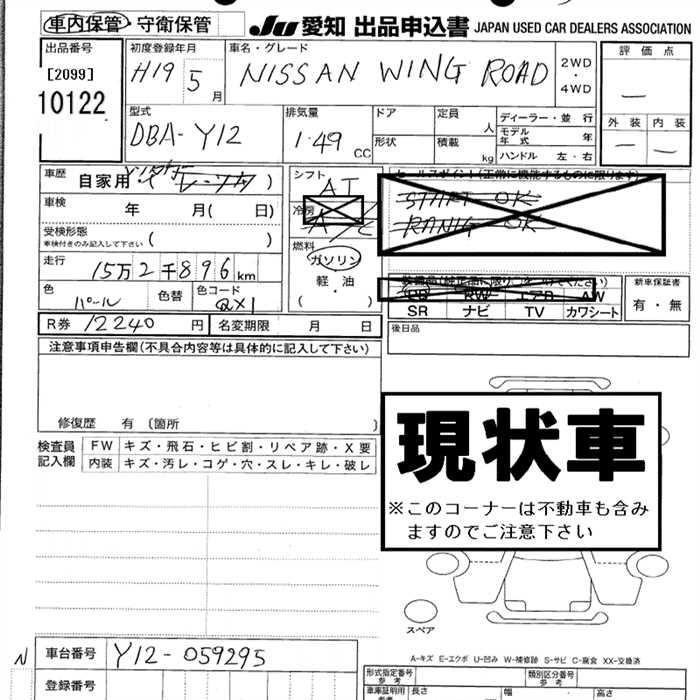 車内保管・守衛保管
JU 愛知 出品申込書 JAPAN USED CAR DEALERS ASSOCIATION
出品番号
[2099]
10122
初度登録年月
H19 5月
車名・グレード
NISSAN WING ROAD
2WD
・
4WD
評価点
—
外装 内装
— —
型式
DBA-Y12
排気量
1.49 CC
ドア
形状
定員 人
積載 kg
ディーラー・並行
モデル年式 年
ハンドル 左・右
車歴
自家用・レンタ )
車検 年 月( 日)
受検形態
車検付きのみ記入して下さい ( )
走行
15万2千896km
色
パール
色替
色コード
QX1
シフト
AT
冷房
A/C
燃料
ガソリン
軽・油
( )
セールスポイント(正常に機能するものに限ります)
START OK
RANIG OK
装備品(純正品に限り○をつけてください)
PS PW エアB AW
SR ナビ TV カワシート
新車保証書
有・無
R券 12240 円
名変期限 月 日
後日品
注意事項申告欄(不具合内容等は具体的に記入して下さい)
修復歴 有 〔箇所 〕
検査員記入欄
FW キズ・飛石・ヒビ割・リペア跡・X要
内装 キズ・汚レ・コゲ・穴・スレ・キレ・破レ
現状車
※このコーナーは不動車も含み
ますのでご注意下さい
スペア
A-キズ E-エクボ U-凹み W-補修跡 S-サビ C-腐食 XX-交換済
N 車台番号 Y12-059295
登録番号
形式指定番号
参考
類別区分番号
参考
車庫証明用
参考
長さ 幅 高さ